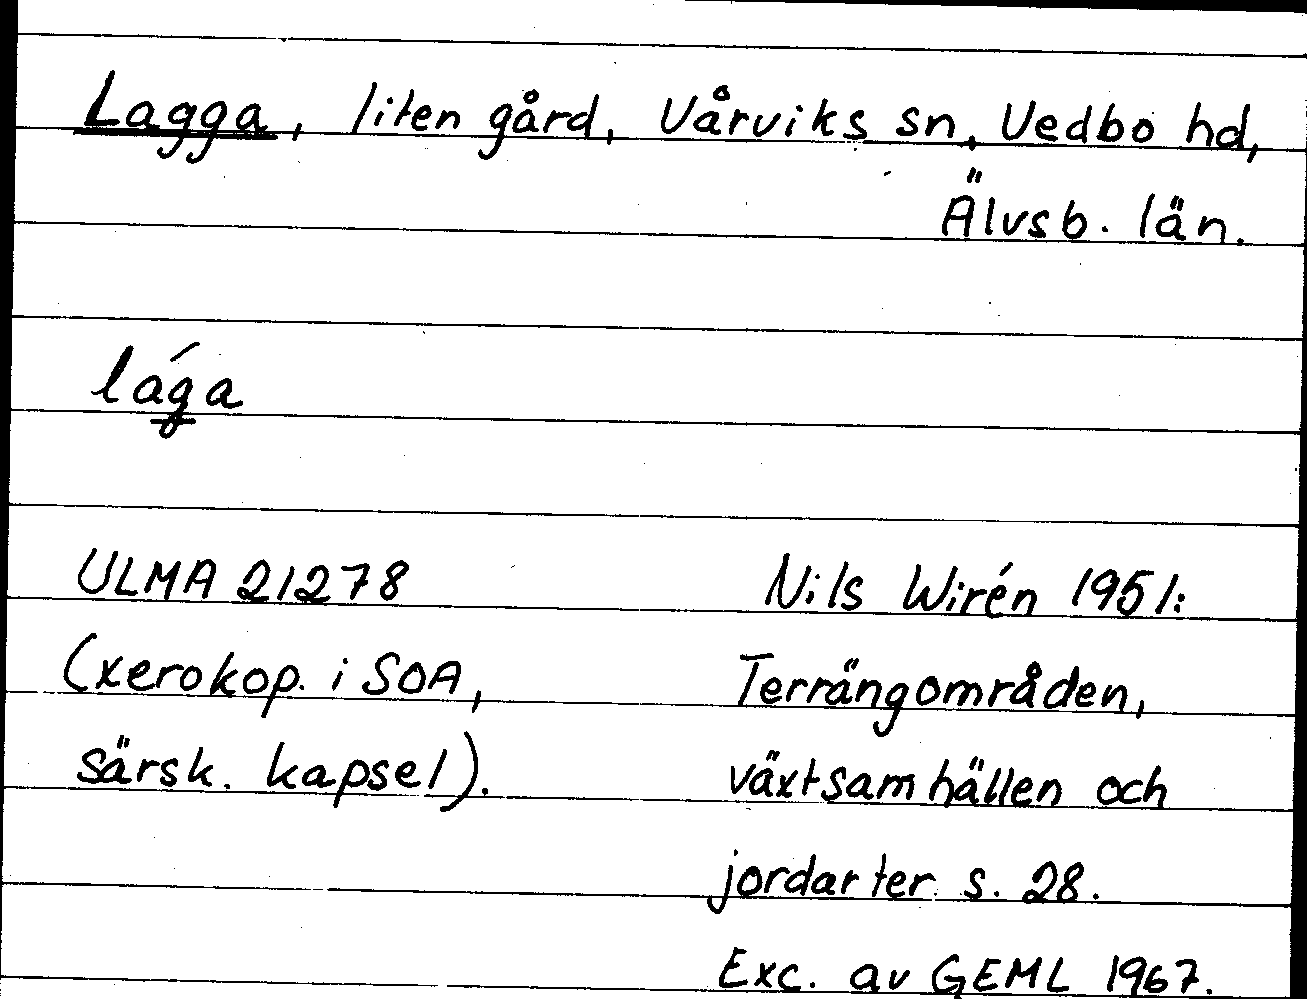 Lagga, liten gård, Vårviks sn, Vedbo hd,
Älvsb. län.
lág̱a
ULMA 21278
(xerokop. i SOA,
särsk. kapsel).
Nils Wirén 1951:
Terrängområden,
växtsamhällen och
jordarter s. 28.
Exc. av GEML 1967.